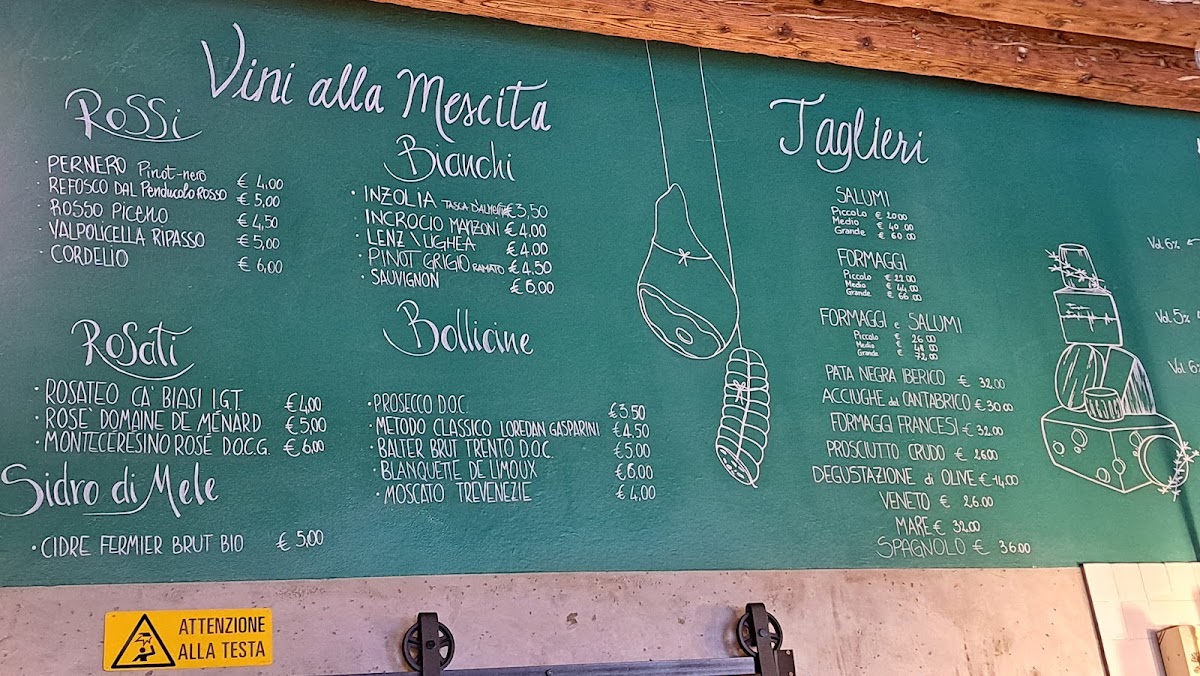 Vini alla Mescita
Rossi
· PERNERO Pinot-nero € 4,00
· REFOSCO DAL Penducolo Rosso € 5,00
· ROSSO Piceno € 4,50
· VALPOLICELLA RIPASSO € 5,00
· CORDELIO € 6,00
Rosati
· ROSATEO CA' BIASI I.G.T. €4,00
· ROSE' DOMAINE DE MÉNARD €5,00
· MONTECERESINO ROSÉ D.O.C.G. € 6,00
Sidro di Mele
· CIDRE FERMIER BRUT BIO € 5,00
Bianchi
· INZOLIA TASCA €3,50
· INCROCIO MANZONI € 4,00
· LENZ \ LIGHEA € 4,00
· PINOT GRIGIO RAMATO € 4,50
· SAUVIGNON € 5,00
Bollicine
· PROSECCO D.O.C. €3,50
· METODO CLASSICO LOREDAN GASPARINI €4,50
· BALTER BRUT TRENTO D.O.C. €5,00
· BLANQUETTE DE LIMOUX €6,00
· MOSCATO TREVENEZIE € 4,00
Taglieri
SALUMI
Piccolo € 20.00
Medio € 40.00
Grande € 60.00
FORMAGGI
Piccolo € 22.00
Medio € 44.00
Grande € 66.00
FORMAGGI e SALUMI
Piccolo € 26.00
Medio € 48.00
Grande € 72.00
PATA NEGRA IBERICO € 32.00
ACCIUGHE del CANTABRICO € 30.00
FORMAGGI FRANCESI € 32.00
PROSCIUTTO CRUDO € 26.00
DEGUSTAZIONE di OLIVE € 14.00
VENETO € 26.00
MARE € 32.00
SPAGNOLO € 36.00
Vol. 6%
Vol. 5%
Vol. 6
ATTENZIONE
ALLA TESTA